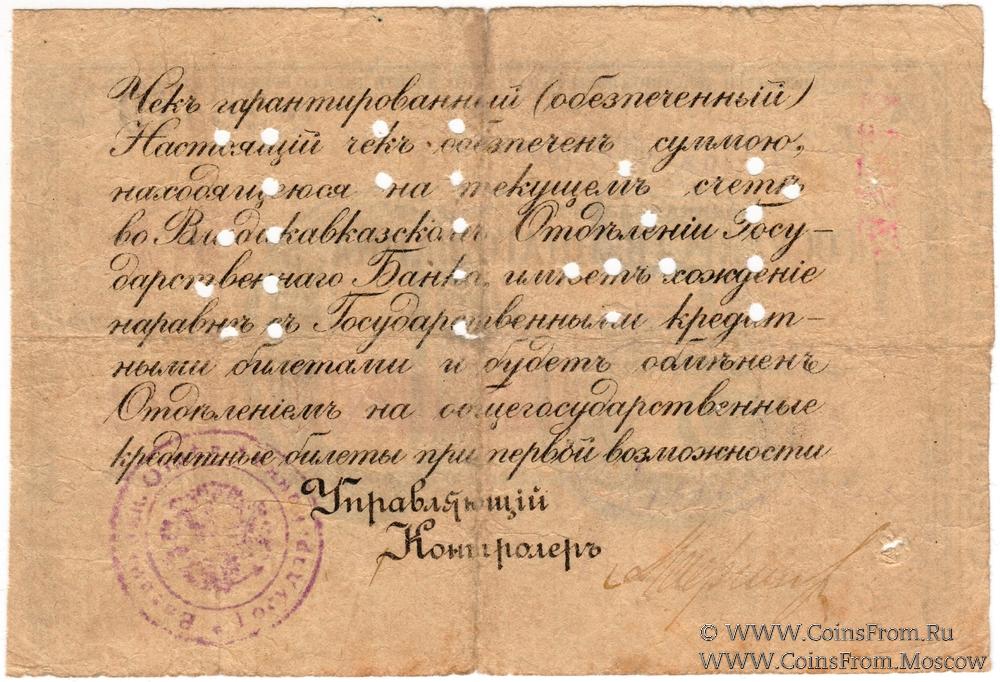 Чекъ гарантированный (обезпеченный)
Настоящій чекъ обезпечен суммою,
находящеюся на текущемъ счетѣ
во Владикавказскомъ Отдѣленіи Госу-
дарственнаго Банка, имѣетъ хожденіе
наравнѣ съ Государственными кредит-
ными билетами и будетъ обмѣненъ
Отдѣленіемъ на общегосударственные
кредитные билеты при первой возможности
Управляющій
Контролеръ
© WWW.CoinsFrom.Ru
WWW.CoinsFrom.Moscow